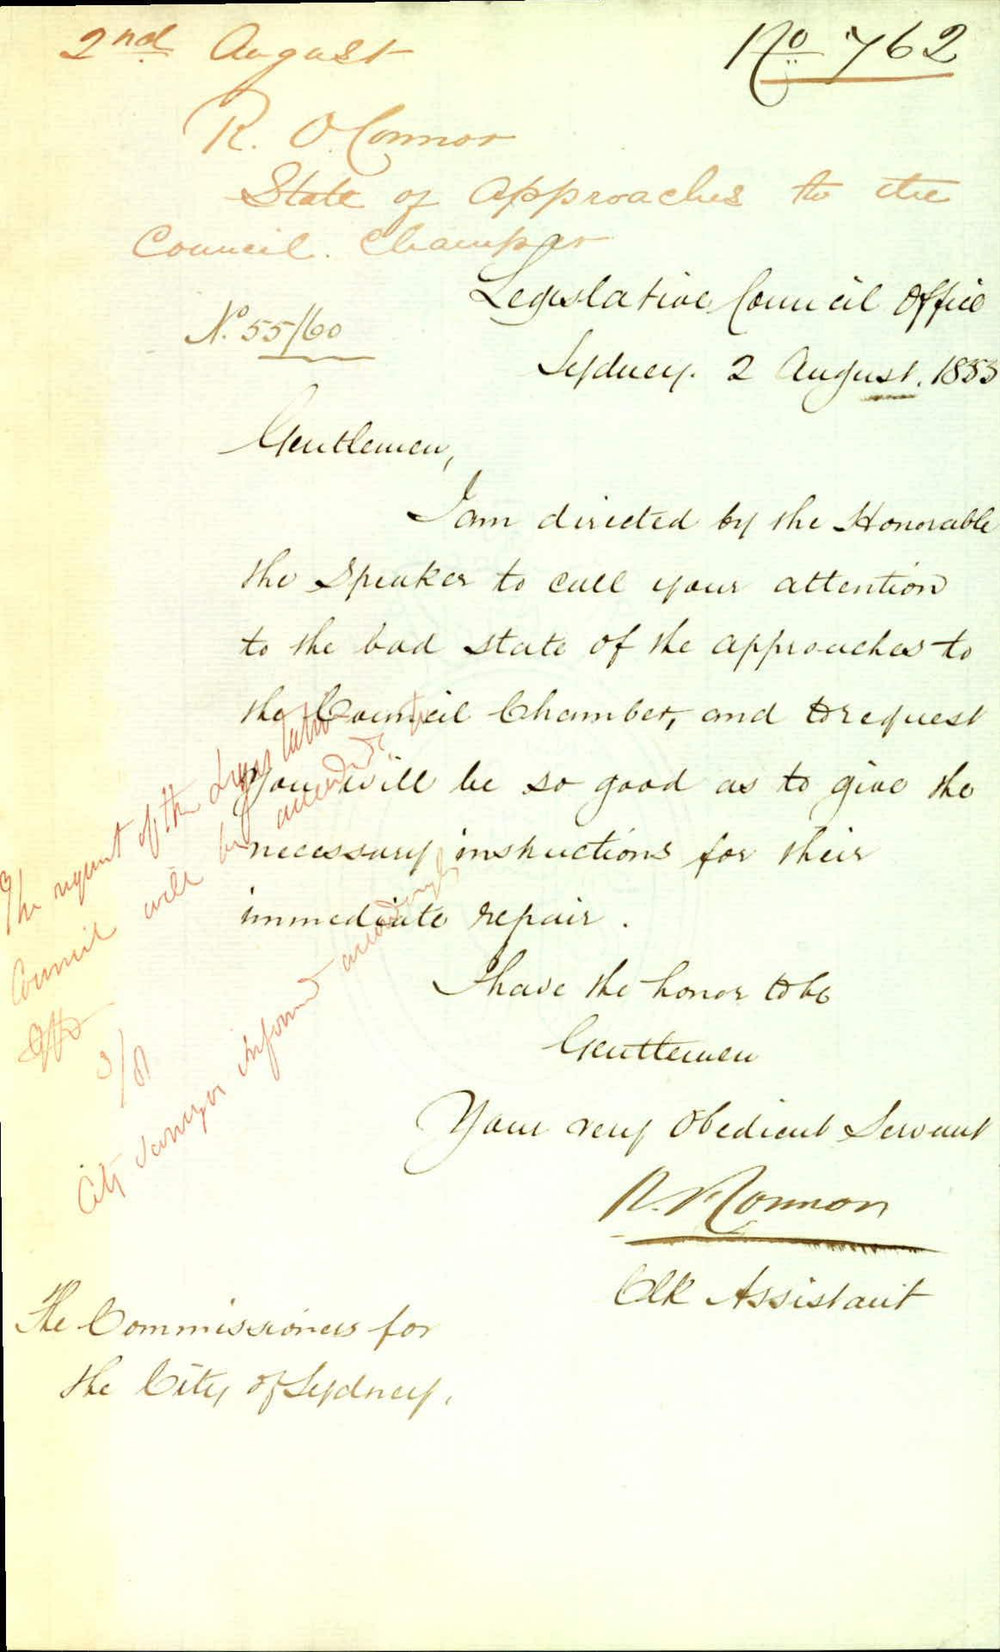 2nd August
No 762
R. O'Connor
State of approaches to the
Council Chamber
No. 55/60
Legislative Council Office
Sydney. 2 August. 1855
Gentlemen,
I am directed by the Honorable
the Speaker to call your attention
to the bad state of the approaches to
the Council Chamber, and to request
you will be so good as to give the
necessary instructions for their
immediate repair.
I have the honor to be
Gentlemen
Your very Obedient Servant
R. O'Connor
Clk Assistant
The Commissioners for
the City of Sydney.
The request of the Legislative
Council will be attended to
3/8
City Surveyor informed accordingly